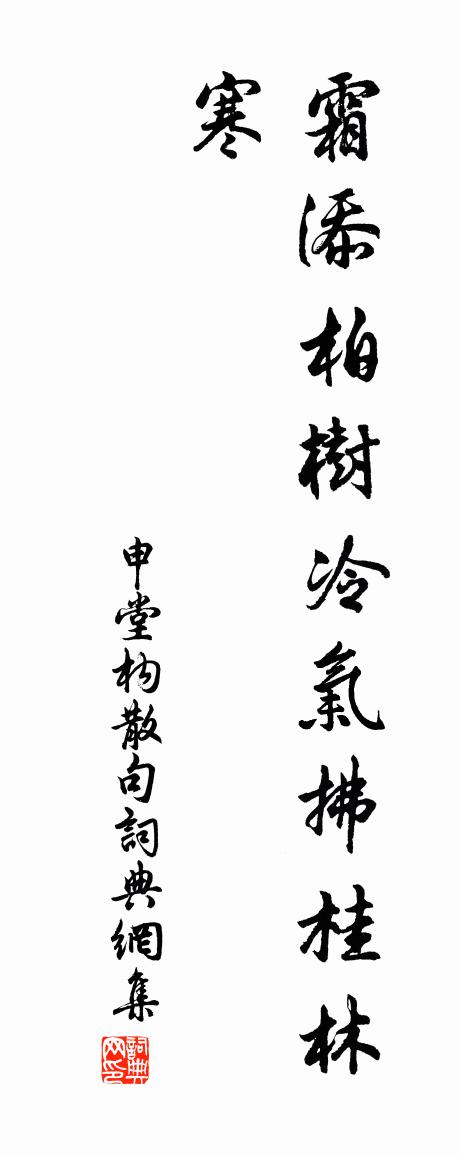 霜添柏樹冷氣拂桂林
寒
申堂构散句詞典網集
詞典
网印